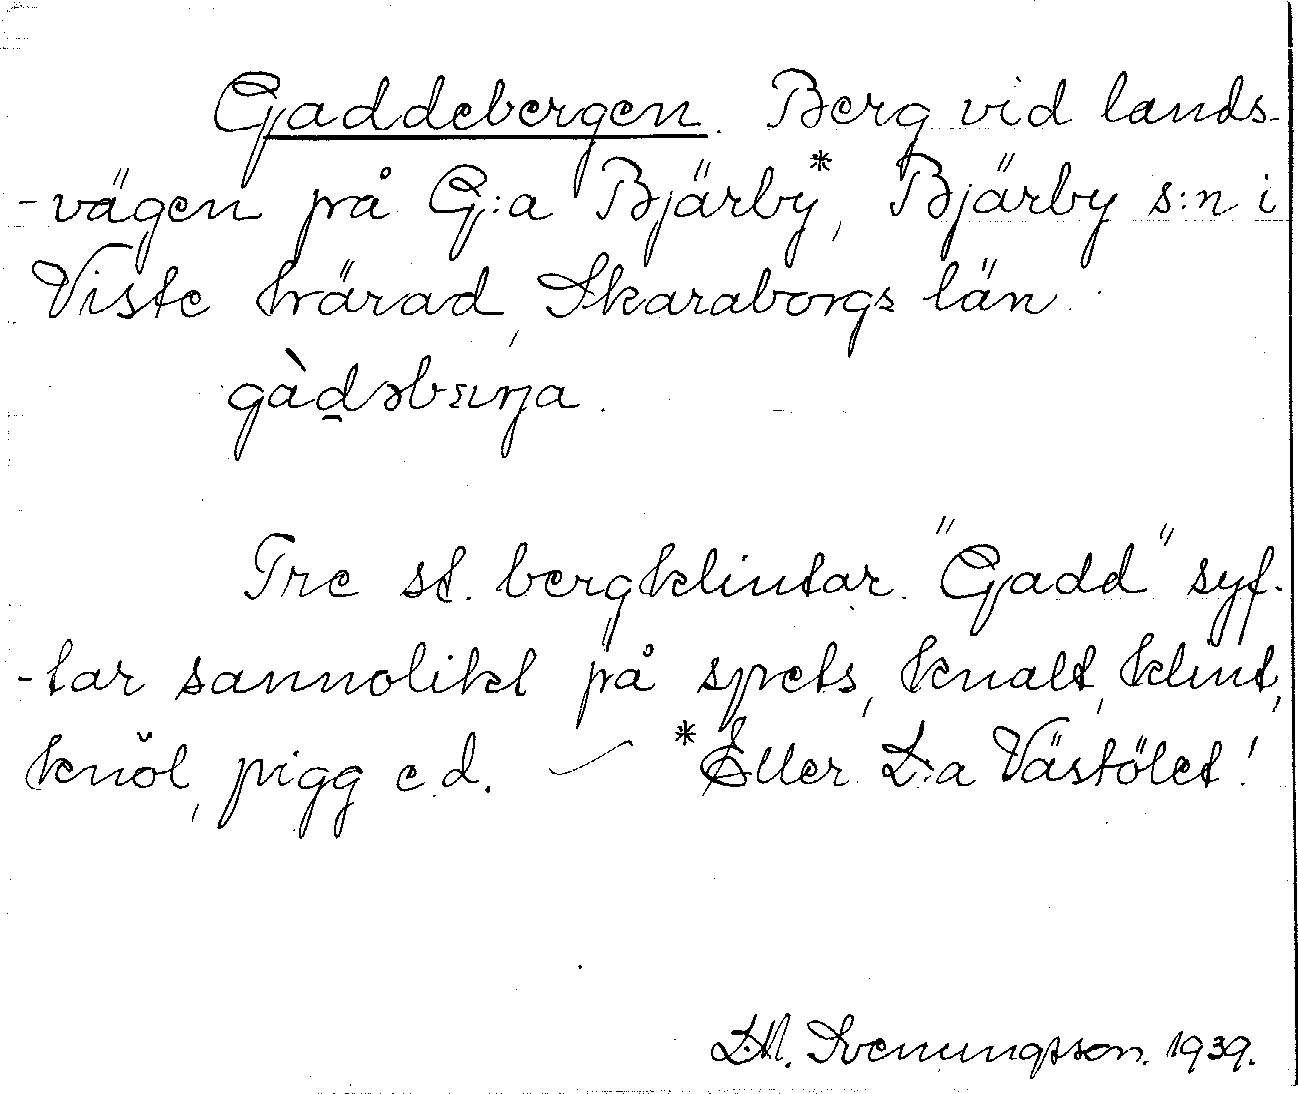 Gaddebergen. Berg vid lands-
-vägen på G:a Bjärby*, Bjärby s:n i
Viste härad, Skaraborgs län.
gàdəbærja.
Tre st. bergklintar. "Gadd" syf-
-tar sannolikt på spets, knalt, klint,
knöl, pigg e.d. — *Eller L:a Västölet!
Svenungsson. 1939.